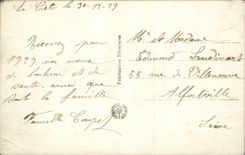 Le 30-12-29
Recevez pour
1929 nos vœux
de bonheur et de
santé, ainsi que
toute la famille
Famille
Fabrication Française
Mr et Madame
Edmond
55 rue de Villeneuve
Alfortville
Seine